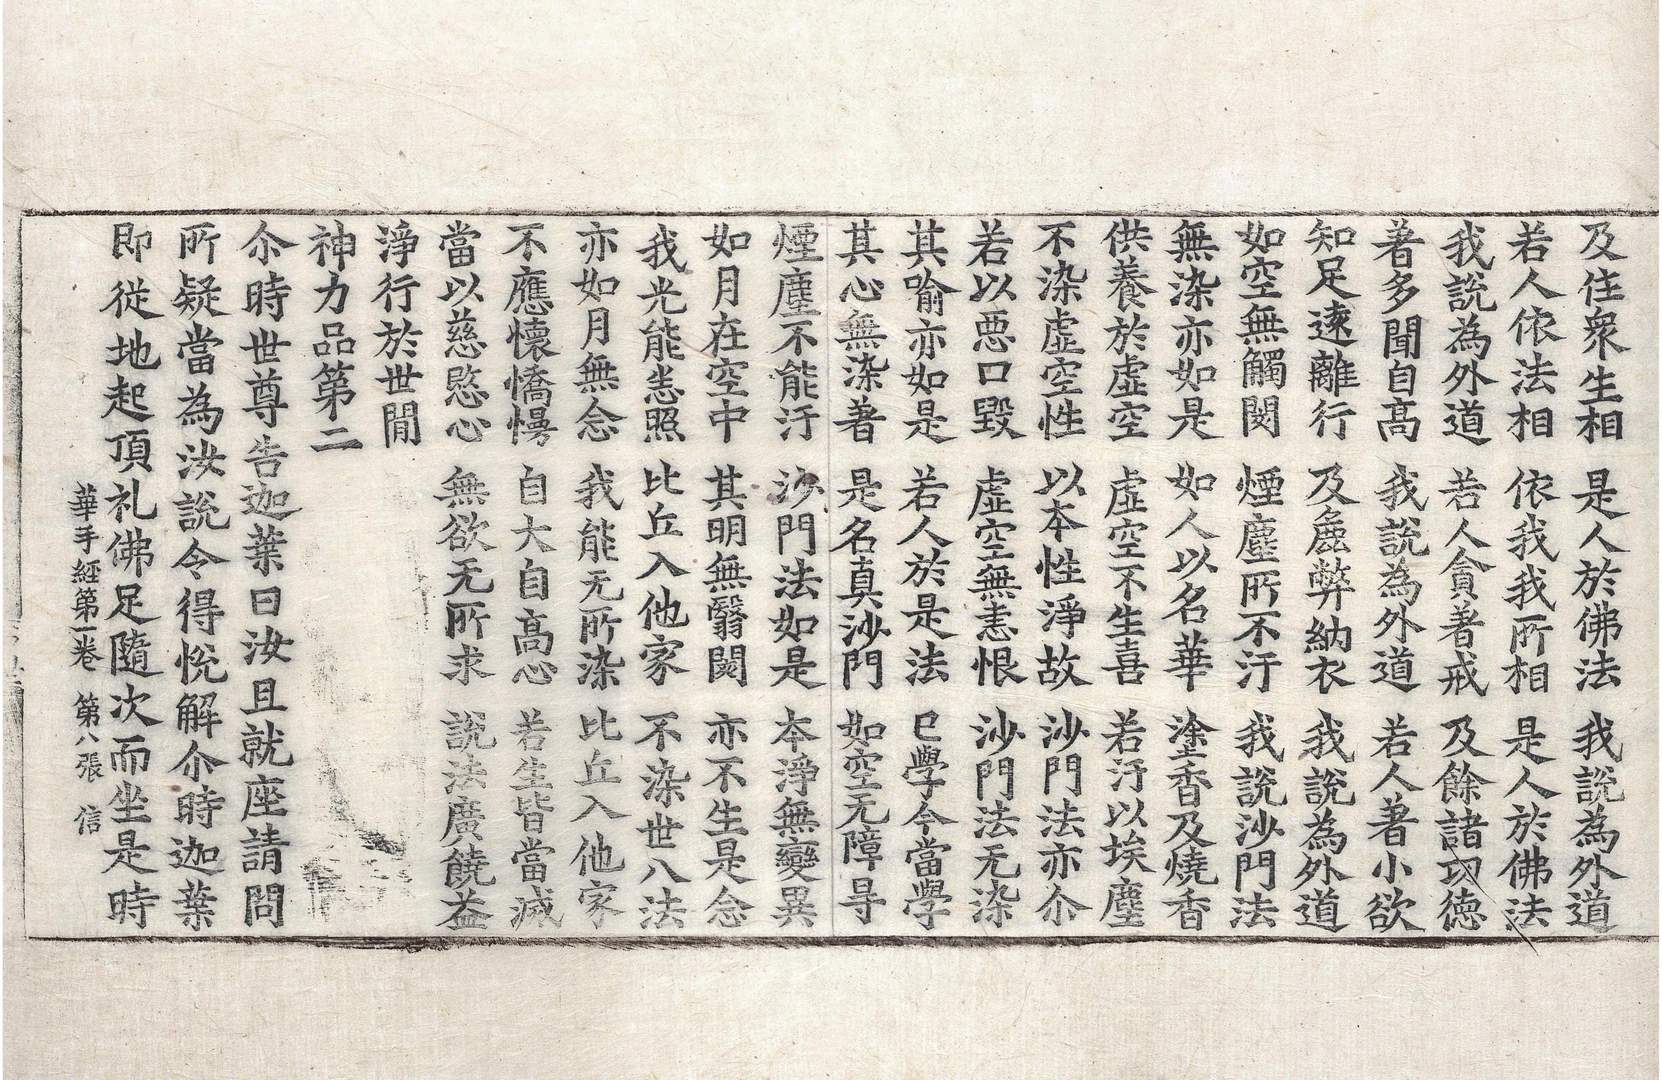 及住衆生相 是人於佛法 我說為外道
若人依法相 依我我所相 是人於佛法
我說為外道 若人貪著戒 及餘諸功徳
著多聞自高 我說為外道 若人著小欲
知足遠離行 及麁弊納衣 我說為外道
如空無觸閡 煙塵所不汙 我説沙門法
無染亦如是 如人以名華 塗香及燒香
供養於虛空 虛空不生喜 若汙以埃塵
不染虛空性 以本性淨故 沙門法亦尒
若以惡口毀 虛空無恚恨 沙門法无染
其喻亦如是 若人於是法 已學今當學
其心無染著 是名真沙門 如空无障㝵
煙塵不能汙 沙門法如是 本淨無變異
如月在空中 其明無翳閡 亦不生是念
我光能悉照 比丘入他家 不染世八法
亦如月無念 我能无所染 比丘入他家
不應懷憍慢 自大自高心 若生皆當滅
當以慈愍心 無欲无所求 說法廣饒益
淨行於世閒
神力品第二
尒時世尊告迦葉曰汝且就座請問
所疑當為汝說令得悅解尒時迦葉
即從地起頂礼佛足隨次而坐是時
華手經第一卷 第八張 信